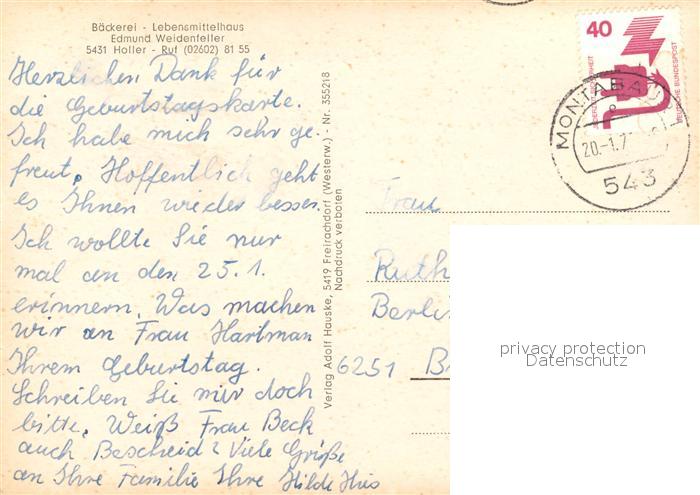 Bäckerei - Lebensmittelhaus
Edmund Weidenfeller
5431 Holler - Ruf (02602) 81 55
Herzlichen Dank für
die Geburtstagskarte.
Ich habe mich sehr ge-
freut. Hoffentlich geht
es Ihnen wieder besser.
Ich wollte Sie nur
mal an den 25.1.
erinnern. Was machen
wir an Frau Hartman
Ihrem Geburtstag.
Schreiben Sie mir doch
bitte. Weiß Frau Beck
auch Bescheid? Viele Grüße
an Ihre Familie Ihre Hilde
Verlag Adolf Hauske, 5419 Freirachdorf (Westerw.) - Nr. 355218
Nachdruck verboten
40
JEDERZEIT SICHERHEIT
DEUTSCHE BUNDESPOST
MONTABAUR
20.-1.7
543
Frau
Ruth
Berli
6251 B
privacy protection
Datenschutz